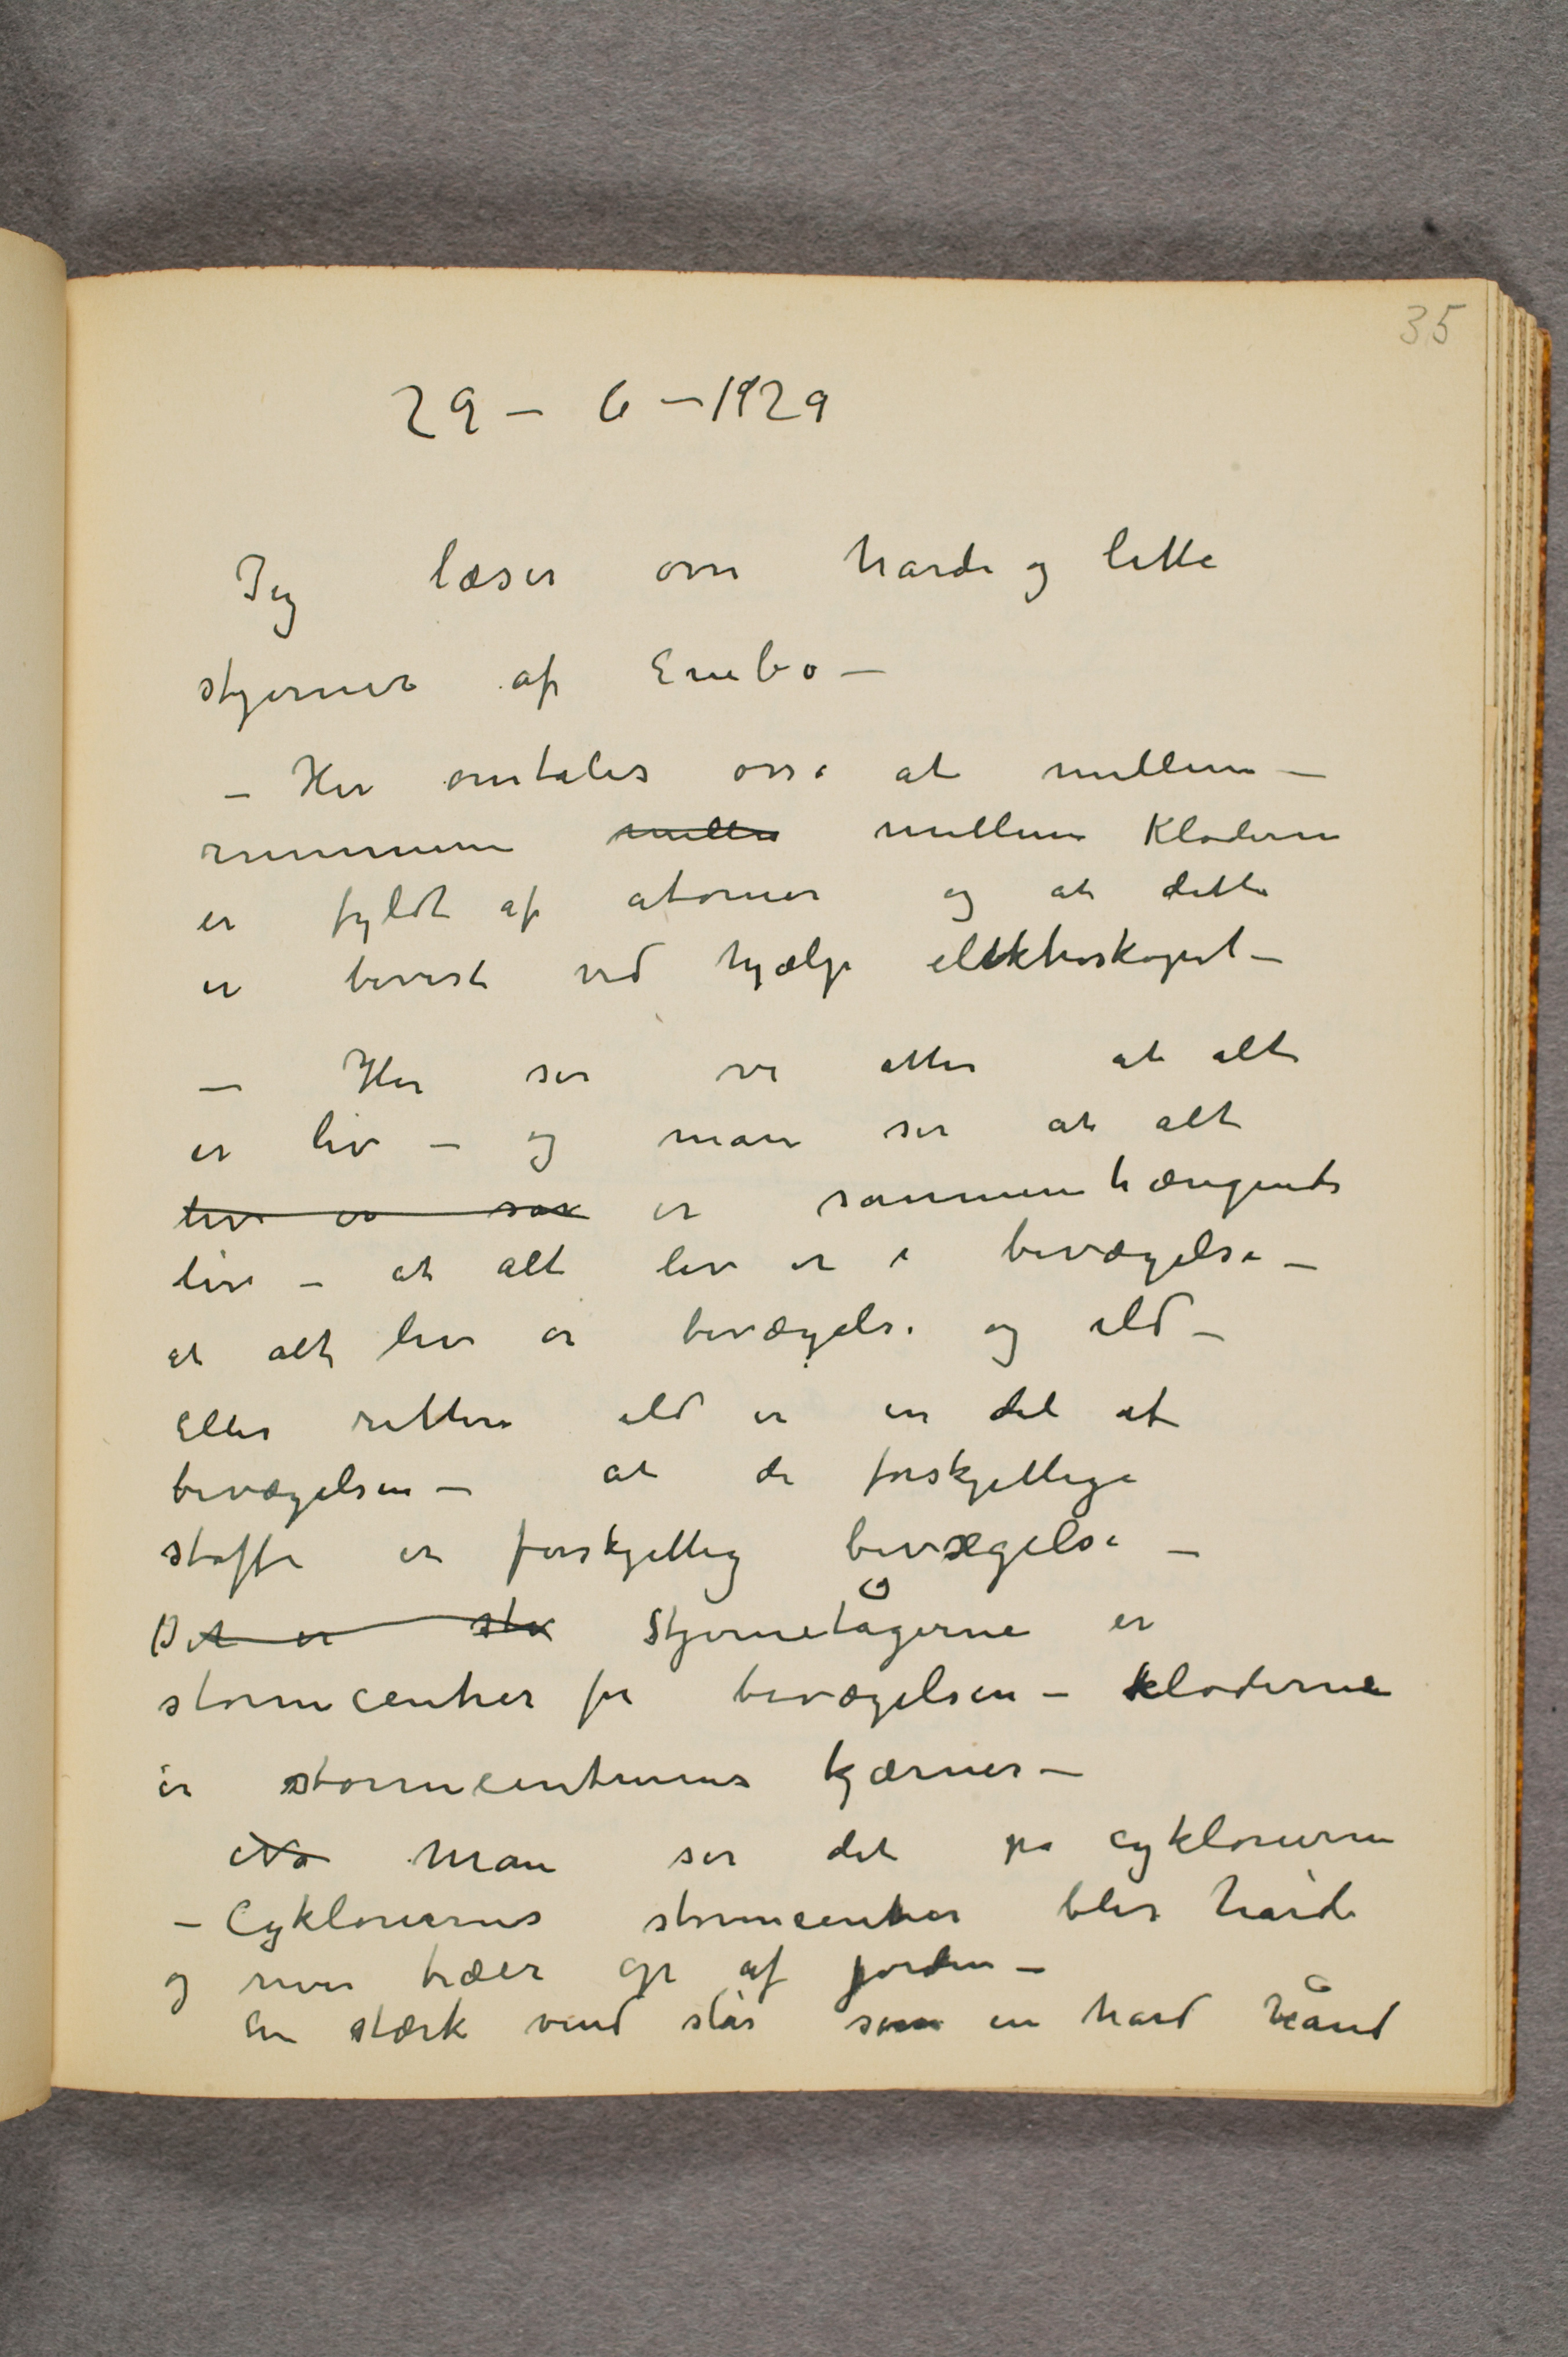 35
29 – 6 – 1929
Jeg læser om harde og lette
stjerner af Enebo –
– Her omtales osså at mellem –
rummene melle mellem Kloderne
er fyldt af atomer og at dette
er bevist ved hjælp elektroskopet –
– Her ser vi atter at alt
er liv – og man ser at alt
liv er sax er sammenhængende
liv – at alt liv er i bevægelse –
at alt liv er bevægelse og ild –
Eller rettere ild er en del af
bevægelsen – at de forskjellige
stoffe er forskjellig bevægelse –
Det er sto Stjernetågerne er
stormcentrer for bevægelsen – kloderne
er stormcentrums kjærner –
Na Man ser det på cyklonerne
– Cyklonernes stormcentrer blir hårde
og river træer op af jorden –
En stærk vind slår som en hard hånd